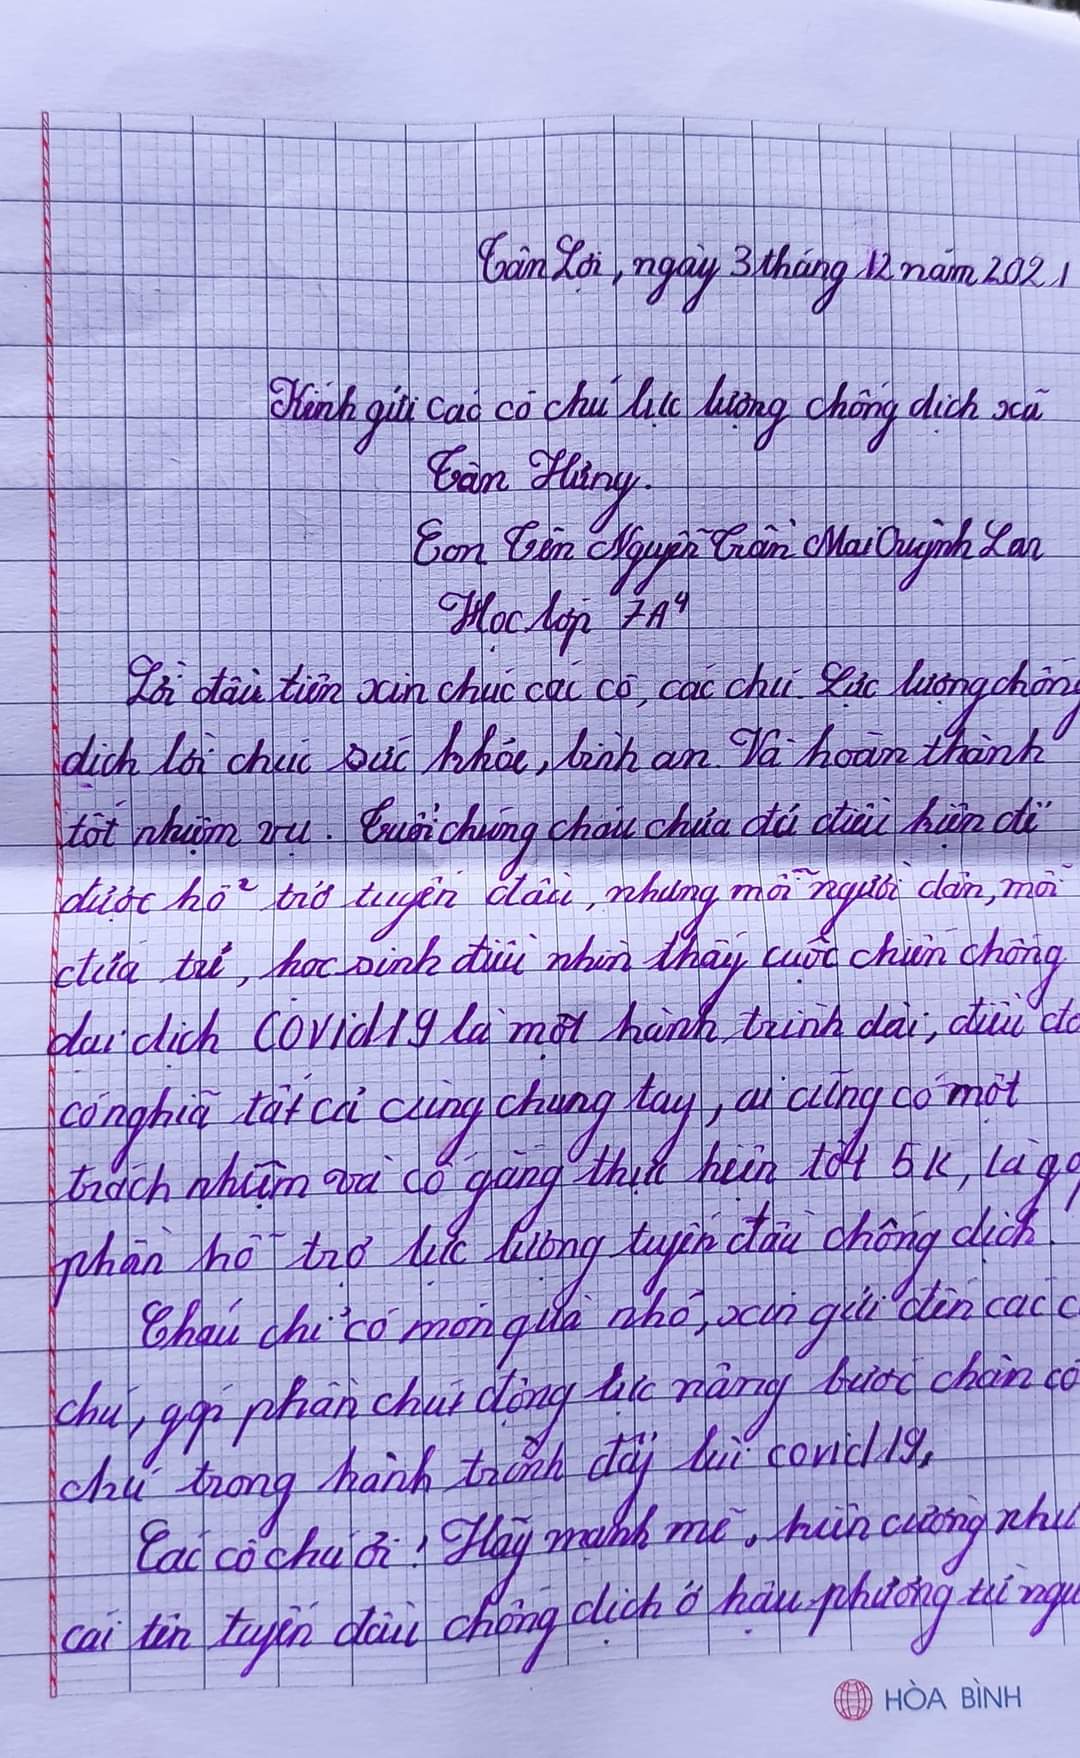 Tân Lợi, ngày 3 tháng 12 năm 2021
Kính gửi các cô chú lực lượng chống dịch xã
Tân Hưng.
Con tên Nguyễn Trần Mai Quỳnh Lan
Học lớp 7A4
Lời đầu tiên xin chúc các cô, các chú. Lực lượng chống
dịch lời chúc sức khỏe, bình an. Và hoàn thành
tốt nhiệm vụ. Tuổi chúng cháu chưa đủ điều kiện để
được hỗ trợ tuyến đầu, nhưng mỗi người dân, mỗi
đứa trẻ, học sinh đều nhìn thấy cuộc chiến chống
đại dịch Covid19 là một hành trình dài, điều đó
có nghĩa tất cả cùng chung tay, ai cũng có một
trách nhiệm và cố gắng thực hiện tốt 5K, là
phần hỗ trợ lực lượng tuyến đầu chống dịch.
Cháu chỉ có món quà nhỏ, xin gửi đến các c
chú, góp phần chút động lực nâng bước chân cô
chú trong hành trình đẩy lùi covid19.
Các cô chú ơi! Hãy mạnh mẽ, kiên cường như
cái tên tuyến đầu chống dịch ở hậu phương
HÒA BÌNH